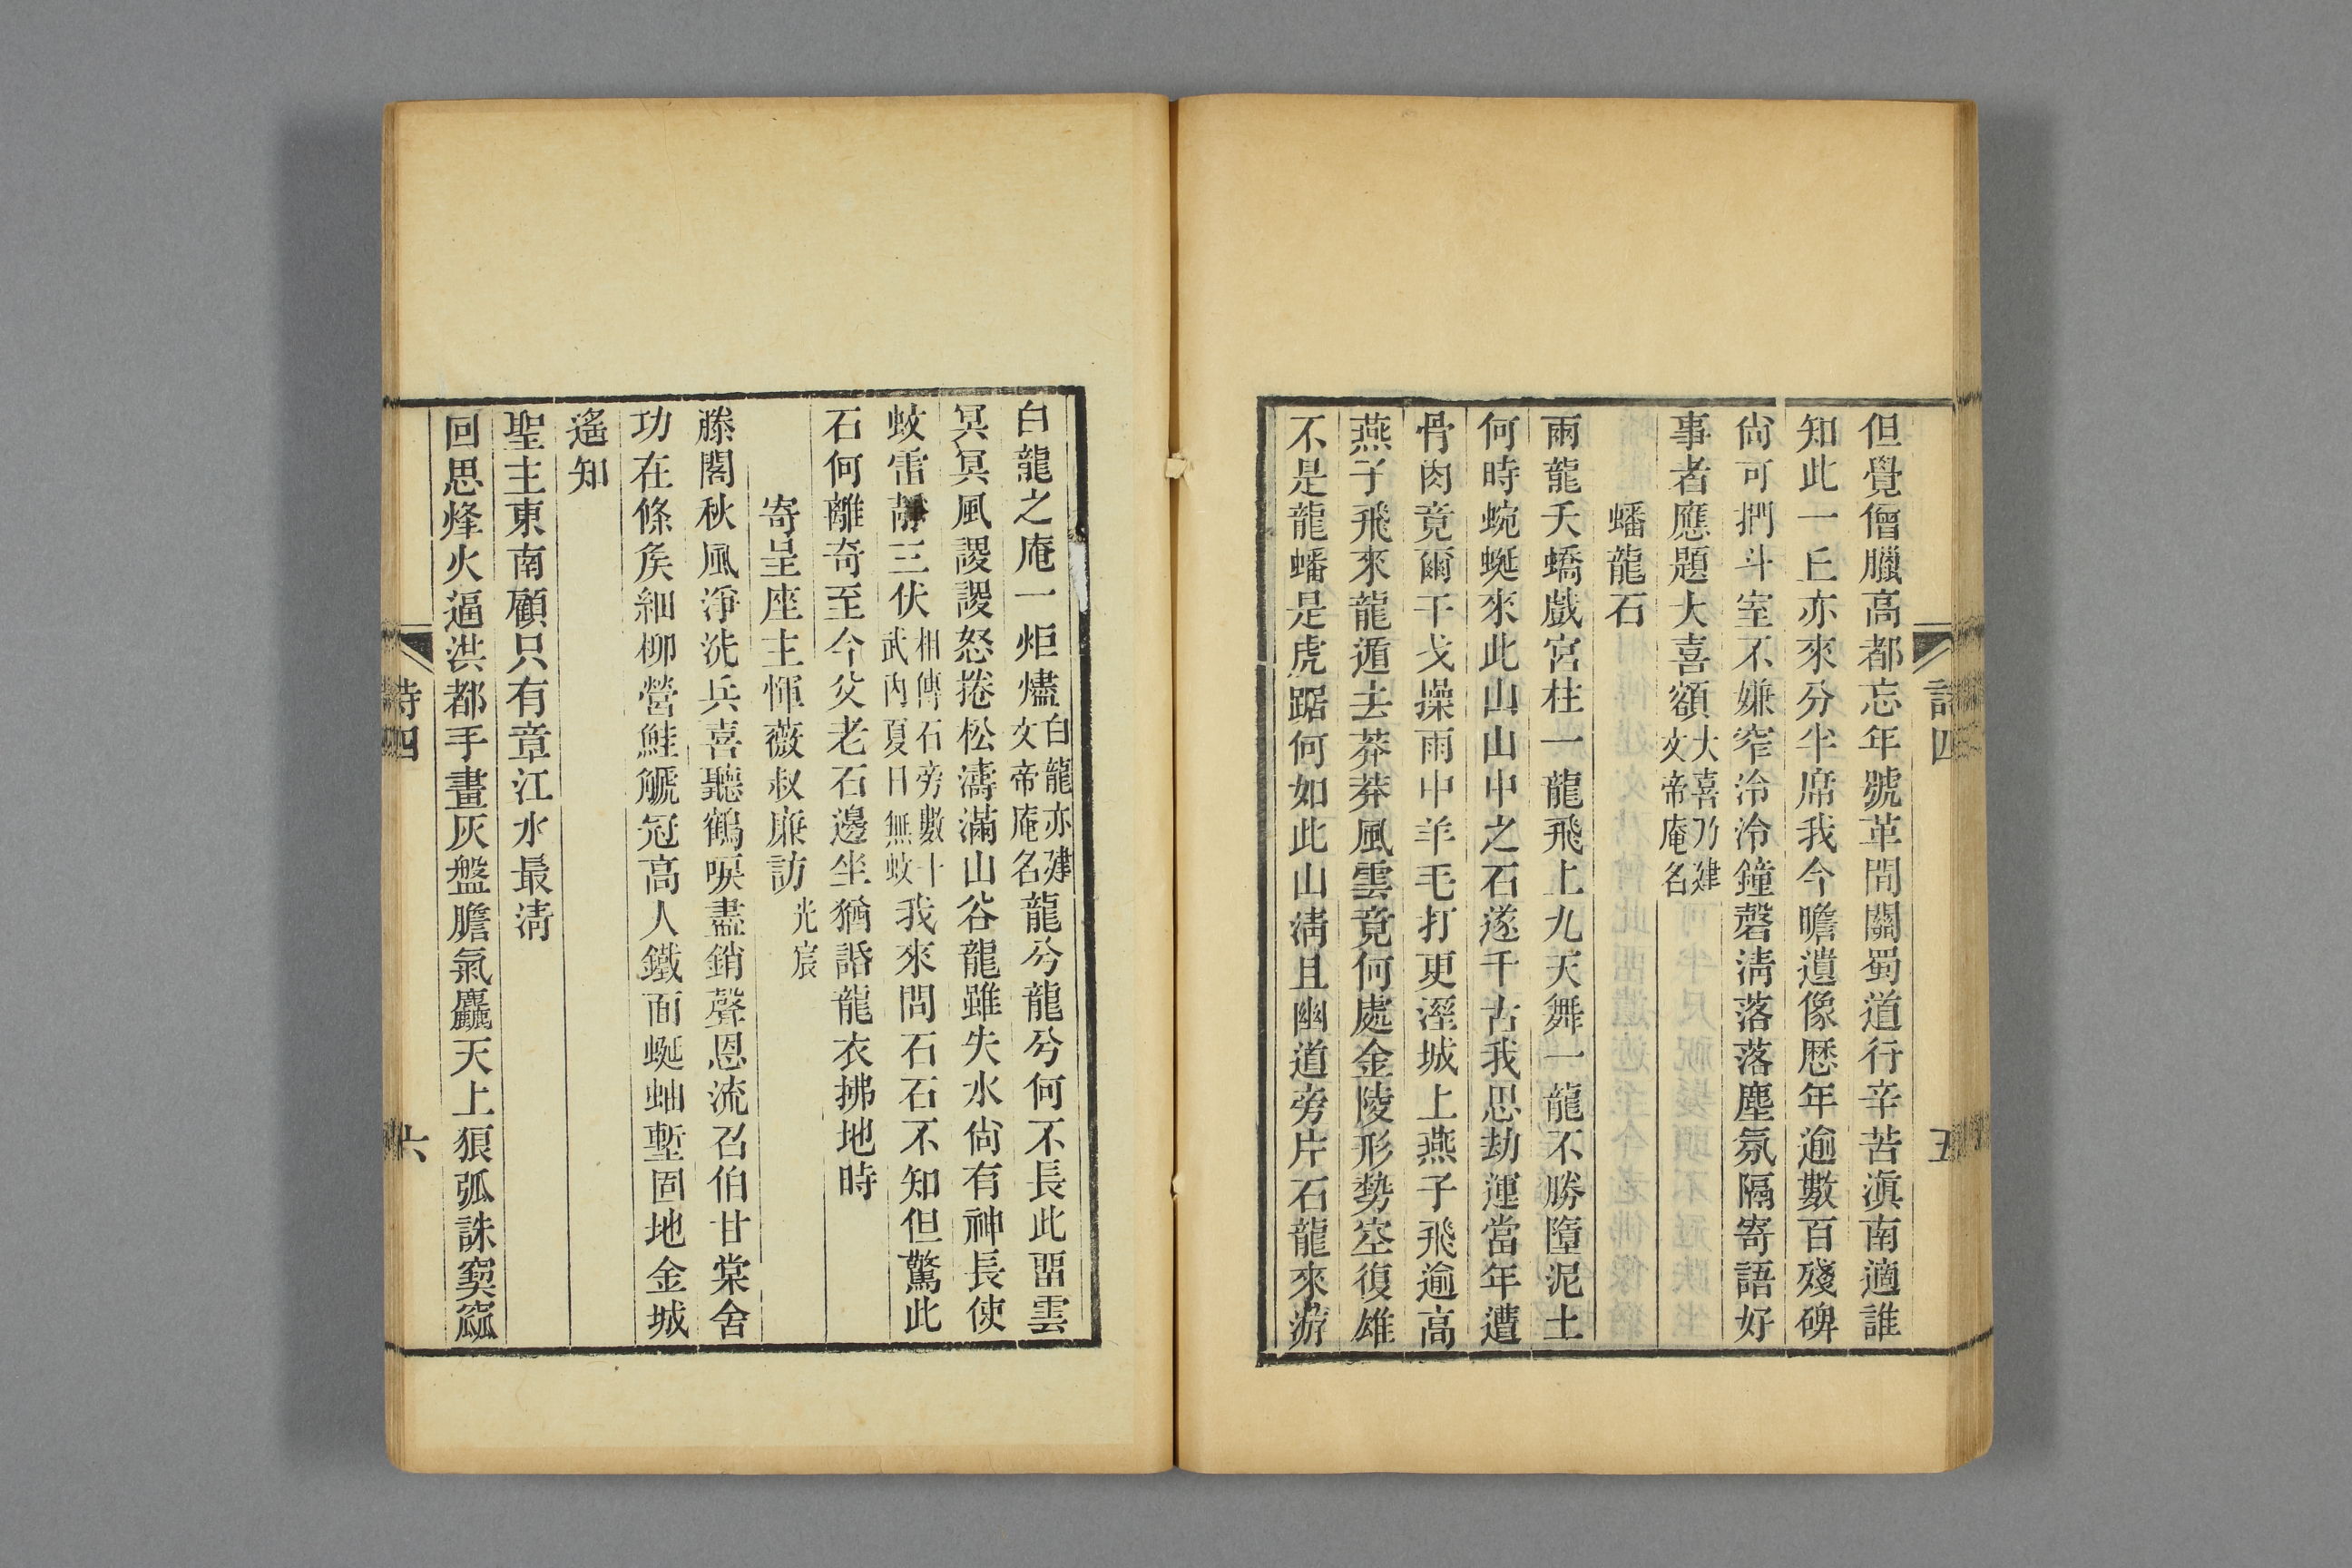 詩四
五
但覺僧臘高都忘年號革間關蜀道行辛苦滇南適誰
知此一丘亦來分半席我今瞻遺像歷年逾數百殘碑
尙可捫斗室不嫌窄泠泠鐘磬淸落落塵氛隔寄語好
事者應題大喜額大喜乃建文帝庵名
蟠龍石
兩龍夭矯戲宮柱一龍飛上九天舞一龍不勝墮泥土
何時蜿蜒來此山山中之石遂千古我思劫運當年遭
骨肉竟爾干戈操雨中羊毛打更溼城上燕子飛逾高
燕子飛來龍遁去莽莽風雲竟何處金陵形勢空復雄
不是龍蟠是虎踞何如此山淸且幽道旁片石龍來游
白龍之庵一炬燼白龍亦建文帝庵名龍兮龍兮何不長此畱雲
冥冥風謖謖怒捲松濤滿山谷龍雖失水尙有神長使
蚊雷靜三伏相傳石旁數十武內夏日無蚊我來問石石不知但驚此
石何離奇至今父老石邊坐猶話龍衣拂地時
寄呈座主惲薇叔廉訪光宸
滕閣秋風淨洗兵喜聽鶴唳盡銷聲恩流召伯甘棠舍
功在條矦細柳營鮭觽冠高人鐵面蜒蚰塹固地金城
遙知
聖主東南顧只有章江水最淸
回思烽火逼洪都手畫灰盤膽氣麤天上狼弧誅窫窳
詩四
六